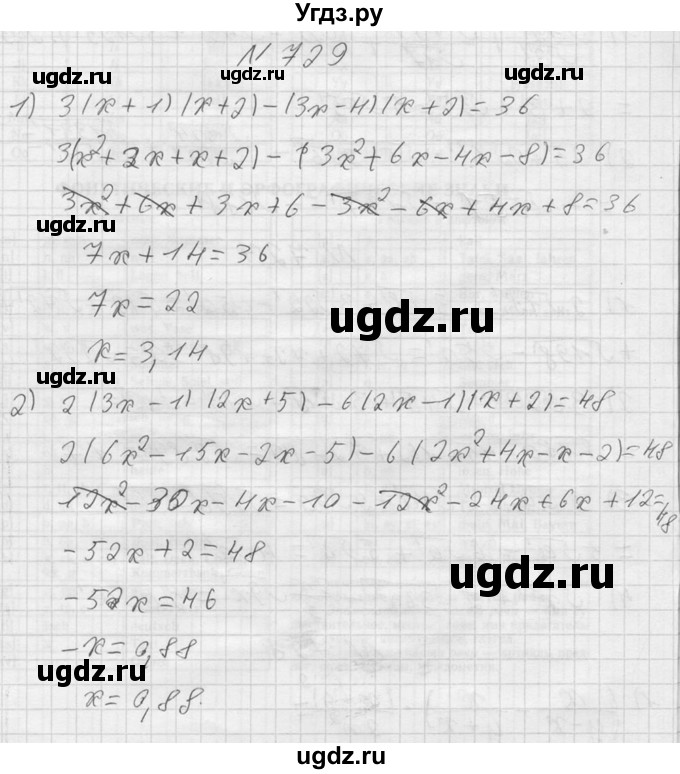 Угдз.ру
N 729
ugdz.ru ugdz.ru
1) 3(x+1)(x+2)-(3x-4)(x+2)=36
3(x²+2x+x+2)-(3x²+6x-4x-8)=36
3x²+6x+3x+6-3x²-6x+4x+8=36
ugdz.ru
7x+14=36
7x=22
ugdz.ru
x=3,14
2) 2(3x-1)(2x+5)-6(2x-1)(x+2)=48
ugdz.ru
2(6x²-15x-2x-5)-6(2x²+4x-x-2)=48
12x²-30x-4x-10-12x²-24x+6x+12=48
-52x+2=48
ugdz.ru
-52x=46
-x=0,88
ugdz.ru
x=0,88.
ugdz.ru